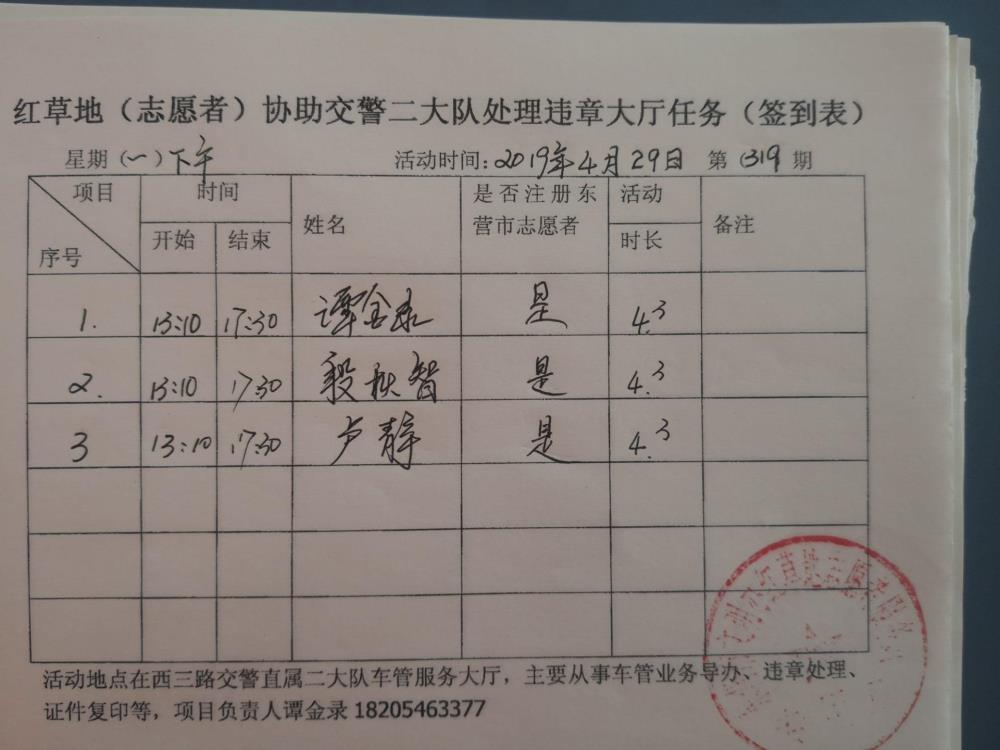 红草地（志愿者）协助交警二大队处理违章大厅任务（签到表）
星期（一）下午 活动时间：2019年4月29日 第（319期
项目 时间 姓名 是否注册东 活动 备注
序号 开始 结束 营市志愿者 时长
1. 13:10 17:30 谭金录 是 4.3
2. 13:10 17:30 段秋智 是 4.3
3 13:10 17:30 卢静 是 4.3
活动地点在西三路交警直属二大队车管服务大厅，主要从事车管业务导办、违章处理、
证件复印等，项目负责人谭金录 18205463377